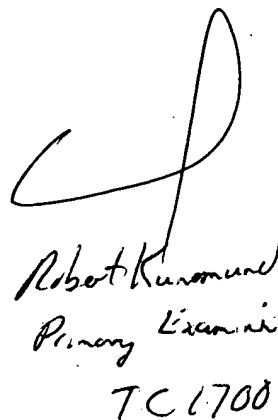 Robert Kunemund
Primary Examiner
TC 1700